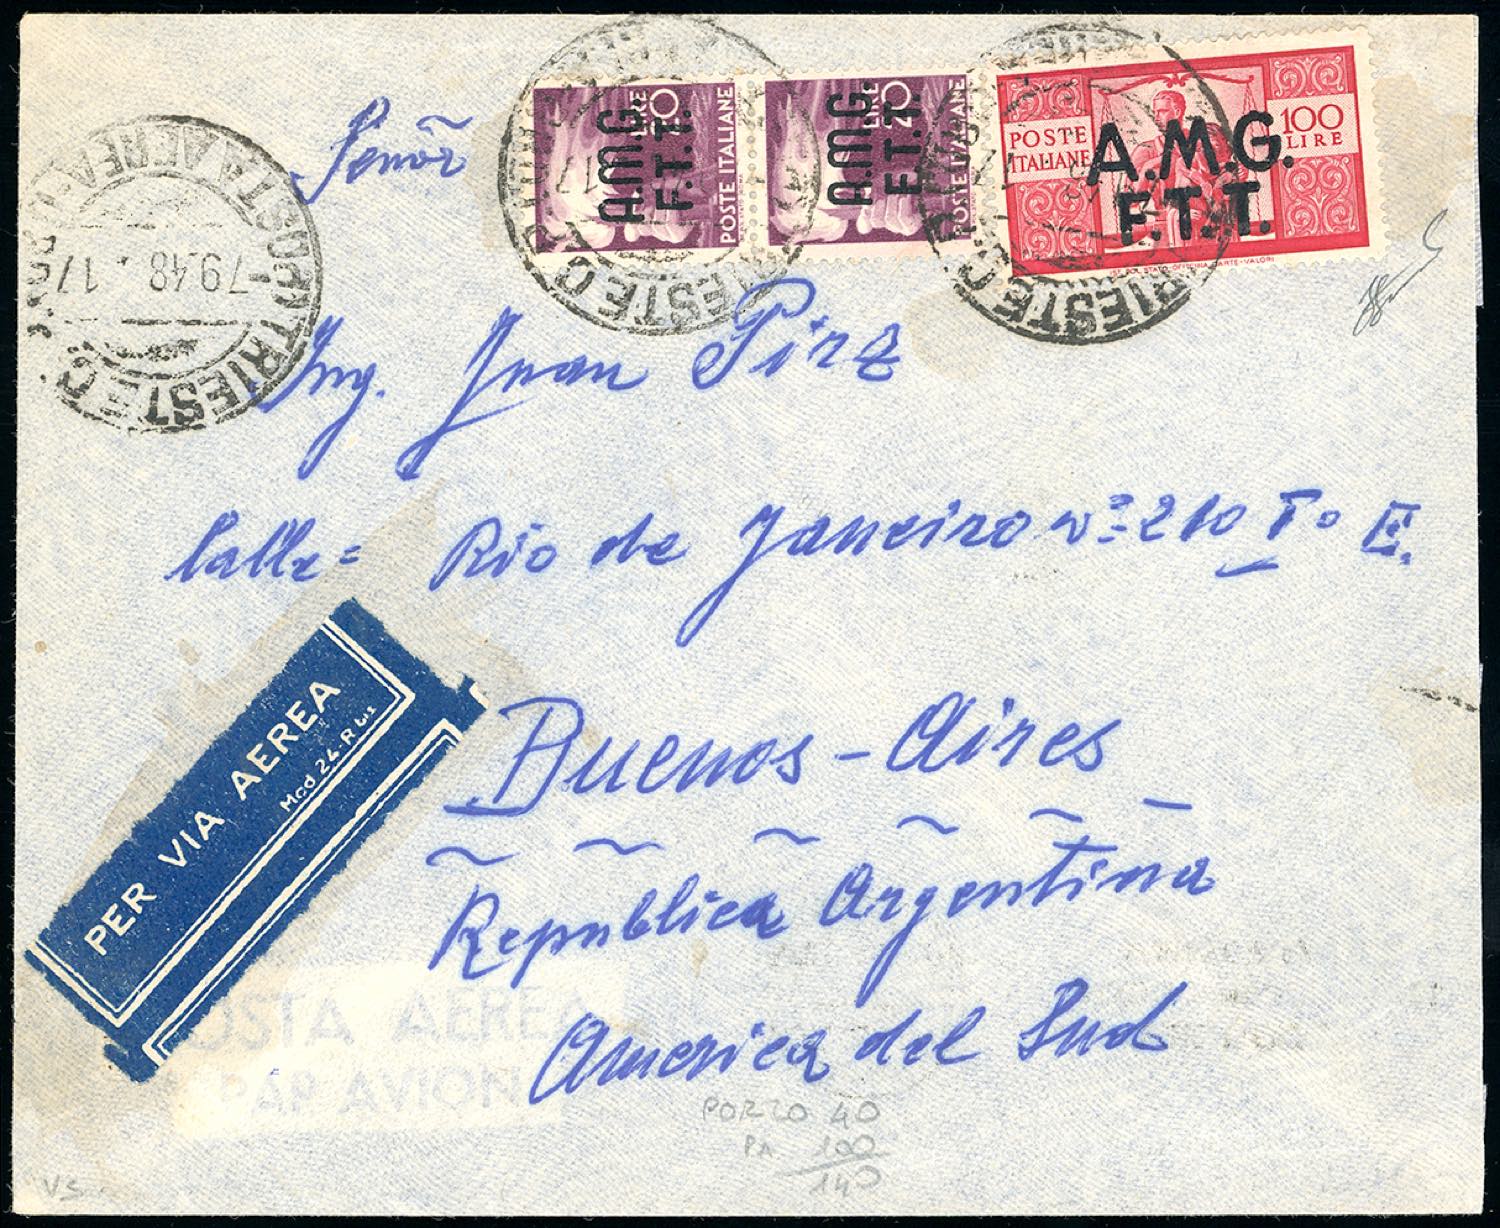 Señor
LIRE 20
POSTE ITALIANE
A.M.G.
F.T.T.
LIRE 20
POSTE ITALIANE
A.M.G.
F.T.T.
POSTE
ITALIANE
100
LIRE
A.M.G.
F.T.T.
IST. POL. STATO-OFFICINA CARTE-VALORI
TRIESTE C.
TRIESTE C.
POSTA AEREA
7.9.48. 17
TRIESTE C.
Ing. Juan Pirz
Calle= Rio de Janeiro nº 210 Iº E.
PER VIA AEREA
Mod 24-R bis
Buenos-Aires
Republica Argentina
America del Sud
POSTA AEREA
PAR AVION
PORZO 40
PA 100
140
VS